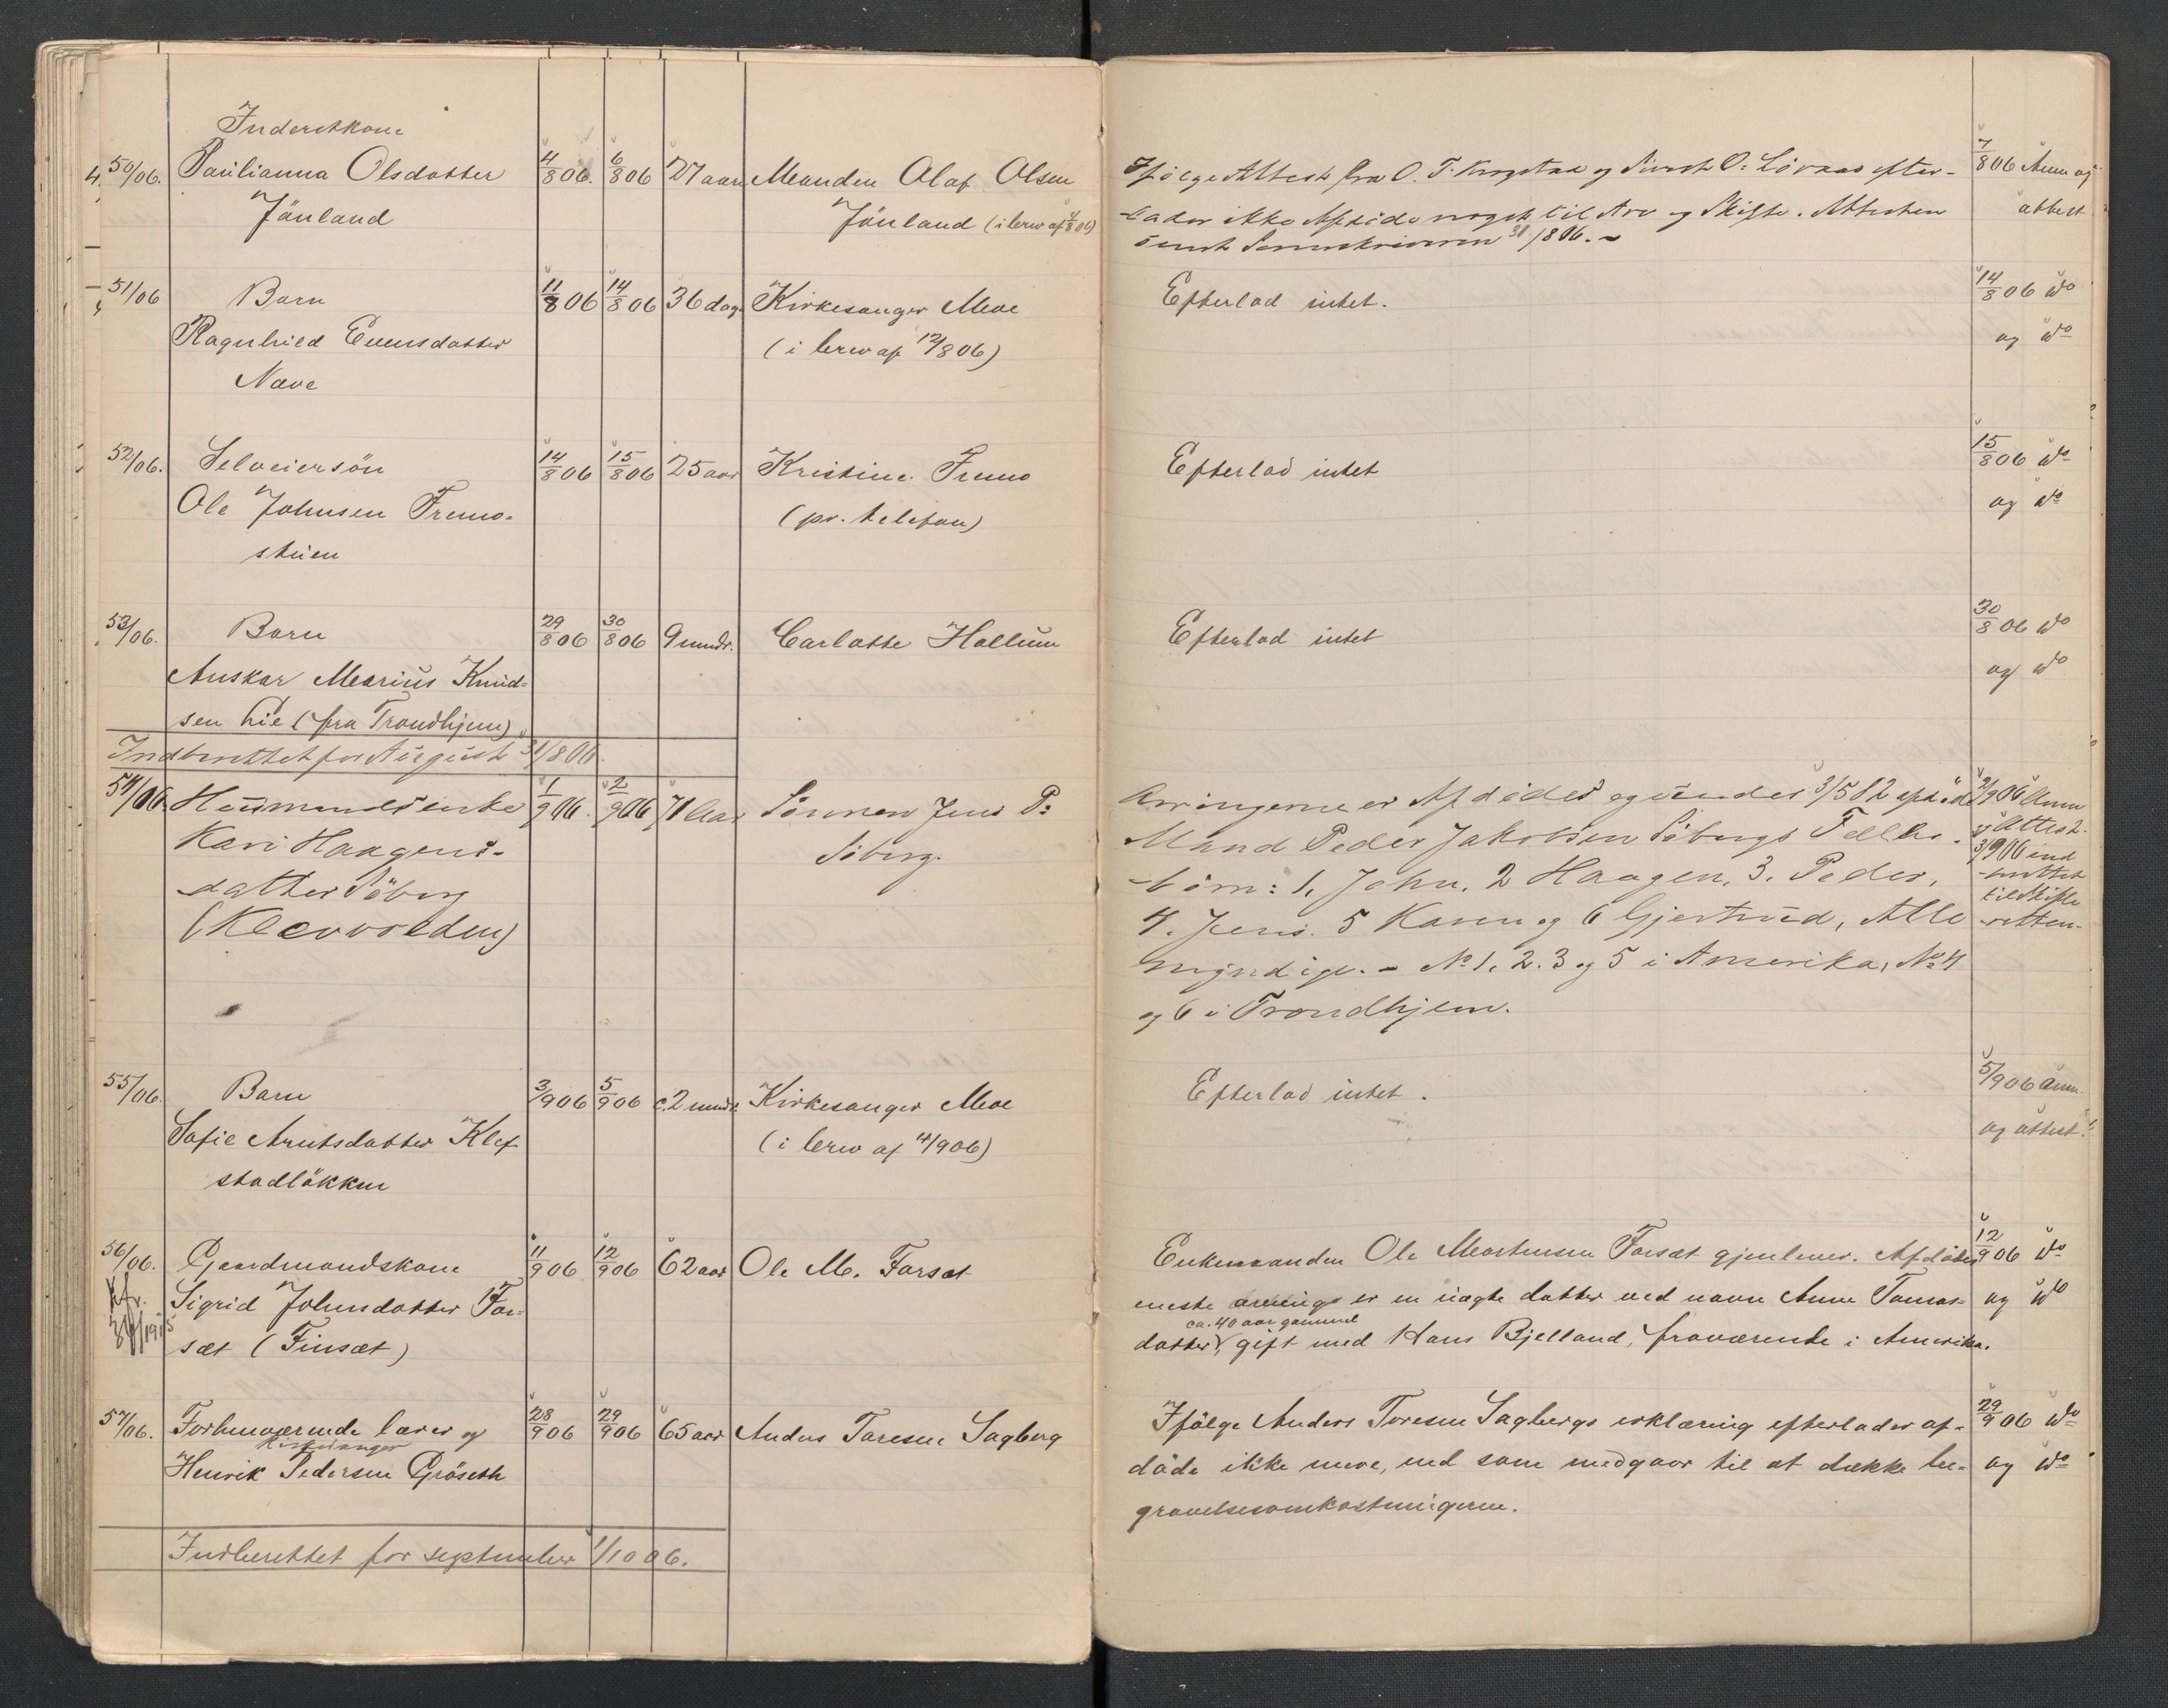 Inderstkone
50/06. Paulianna Olsdatter 4/8 06. 6/8 06 27 aar Manden Olaf Olsen
Jönland Jönland (i brev af 4/8 06)
Ifölge Attest fra O. T. Krogstad og Sivert O. Lövaas efter-
lader ikke Afdöde noget til Arv og Skifte. Attesten
sendt Sorenskriveren 31/8 06. -
7/8 06 Anm og
attest
51/06 Barn 11/8 06 14/8 06 36 dage Kirkesanger Moe
Ragnhild Evensdatter (i brev af 12/8 06)
Næve
Efterlod intet. 14/8 06 do
og do
52/06. Selveiersön 14/8 06 15/8 06 25 aar Kristine Fremo
Ole Johnsen Fremo- (pr. telefon)
stuen
Efterlod intet 15/8 06 do
og do
53/06. Barn 29/8 06 30/8 06 9 mndr. Carlotte Hollum
Anskar Marius Knud-
sen Lie (fra Trondhjem)
Efterlod intet 30/8 06 do
og do
Indberettet for August 31/8 06.
54/06 Husmandsenke 1/9 06. 2/9 06 71 Aar Sönnen Jens P.
Kari Haagens- Söberg.
datter Söberg
(Klevvolden)
Arvingerne er Afdödes og under 3/5 82 afdöd
Mand Peder Jakobsen Söbergs Fælles-
börn: 1, John, 2 Haagen, 3. Peder,
4. Jens. 5 Karen og 6 Gjertrud, Alle
myndige. - No 1, 2. 3 og 5 i Amerika, No 4
og 6 i Trondhjem.
2/9 06 Anm
og Attest.
3/9 06 ind
-berettet
til Skifte
-retten.
55/06. Barn 3/9 06 5/9 06 c. 2 mndr. Kirkesanger Moe
Sofie Arntsdatter Klef- (i brev af 4/9 06)
stadlökken
Efterlod intet. 5/9 06 Anm.
og attest.
56/06. Gaardmandskone 11/9 06 12/9 06 62 aar Ole M. Forsæt
Sigrid Johnsdatter For-
sæt (Finsæt)
Enkemanden Ole Mortensen Forsæt gjenlever. Afdödes 12/9 06 do
eneste arving er en uægte datter ved navn Anne Tomas- og do
ca. 40 aar gammel
datter, gift med Hans Bjelland, fraværende i Amerika.
57/06. Forhenværende lærer og 28/9 06 29/9 06 65 aar Anders Toresen Sagberg
kirkesanger
Henrik Pedersen Gröseth
Ifölge Anders Toresen Sagbergs erklæring efterlader af- 29/9 06 do
döde ikke mere, end som medgaar til at dække be- og do
gravelsesomkostningerne.
Indberettet for september 1/10 06.